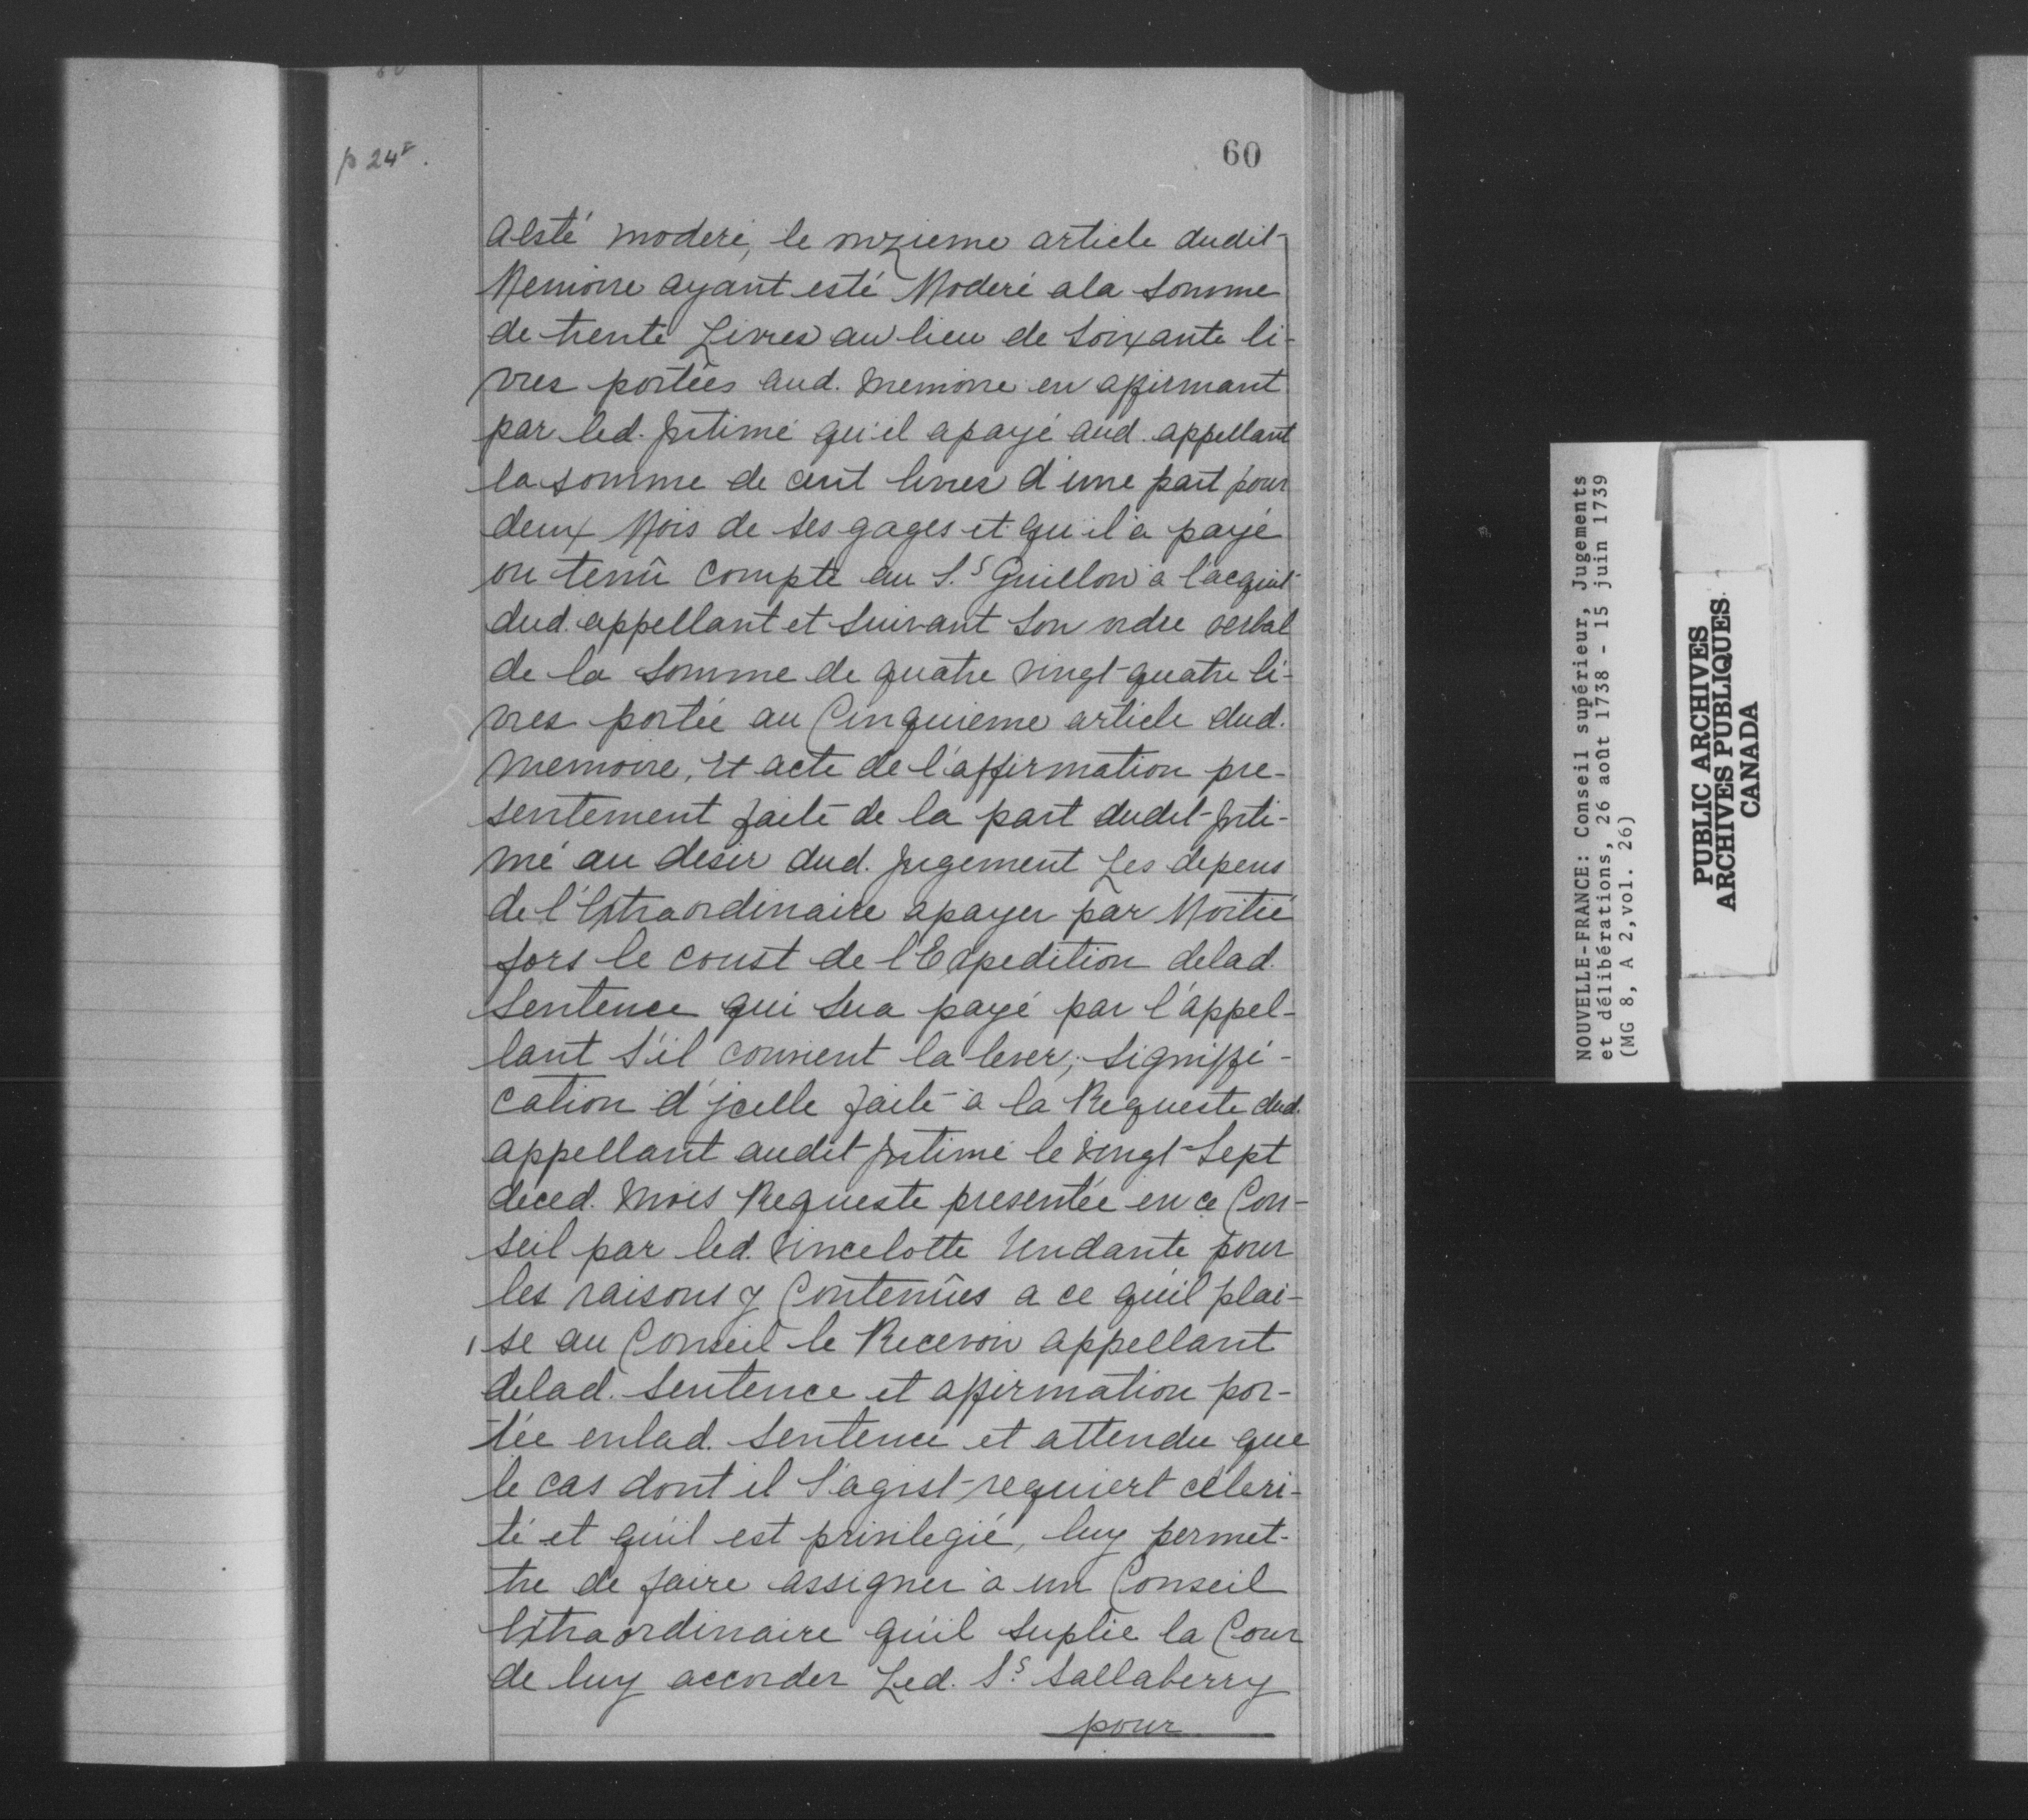 p 24r.
60
a esté moderé, le onzieme article dudit
Memoire ayant esté Moderé ala Somme
de trente Livres au lieu de Soixante li-
vres portées aud. memoire en affirmant
par led. Jntimé qu'il apayé aud. appellant
la somme de cent livres d'une part pour
deux Mois de ses gages et qu'il a payé
ou tenû compte au S.r Guillon a l'acquit
dud. appellant et Suivant Son ordre verbal
de la Somme de quatre vingt-quatre li-
vres portée au Cinquieme article dud.
memoire, Et acte de l'affirmation pre-
sentement faite de la part dudit Jnti-
mé au desir dud. Jugement Les depens
de l'Extraordinaire apayer par Moitié
fors le coust de l'Expedition delad.
Sentence qui Sera payé par l'appel-
lant S'il convient la lever; Signiffi-
cation d'jcelle faite a la Requeste dud.
appellant audit Jntimé le vingt-Sept
deced. mois Requeste presentée en ce Con-
seil par led. Vincelotte tendante pour
les raisons y Contenües a ce qu'il plai-
se au Conseil le Recevoir appellant
delad. Sentence et affirmation por-
tée enlad. Sentence et attendu que
le cas dont il S'agist requiert céleri-
té et qu'il est privilegié, luy permet-
tre de faire assigner a un Conseil
Extraordinaire qu'il Suplie la Cour
de luy accorder Led. S.r Sallaberry
pour
NOUVELLE-FRANCE: Conseil supérieur, Jugements
et délibérations, 26 août 1738 - 15 juin 1739
(MG 8, A 2,vol. 26)
PUBLIC ARCHIVES
ARCHIVES PUBLIQUES
CANADA